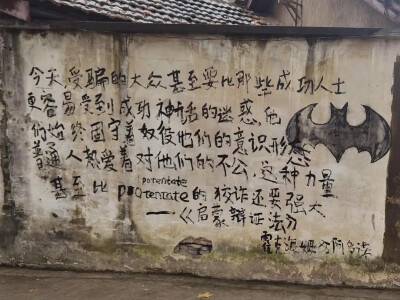 今天受骗的大众甚至要比那些成功人士
更容易受到成功神话的迷惑,他
们始终固守着奴役他们的意识形态
普通人热爱着对他们的不公,这种力量
potentate
甚至比 potentate的狡诈还要强大
——《启蒙辩证法》
霍克海姆